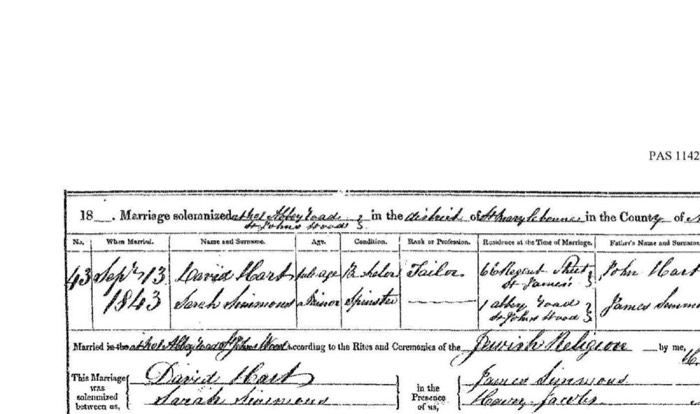 PAS 1142
18__. Marriage solemnized at No 1 Abbey Road St Johns Wood in the district of St Marylebone in the County of
No. When Married. Name and Surname. Age. Condition. Rank or Profession. Residence at the Time of Marriage. Father's Name and Surname
43 Sept 13 David Hart full age Bachelor Tailor 66 Regent Street St James John Hart
1843 Sarah Simmons Minor Spinster 1 Abbey Road St Johns Wood James Simmo
Married in the at No 1 Abbey Road St Johns Wood according to the Rites and Ceremonies of the Jewish Religion by me,
This Marriage was solemnized between us, David Hart Sarah Simmons in the Presence of us, James Simmons Henry Jacobs